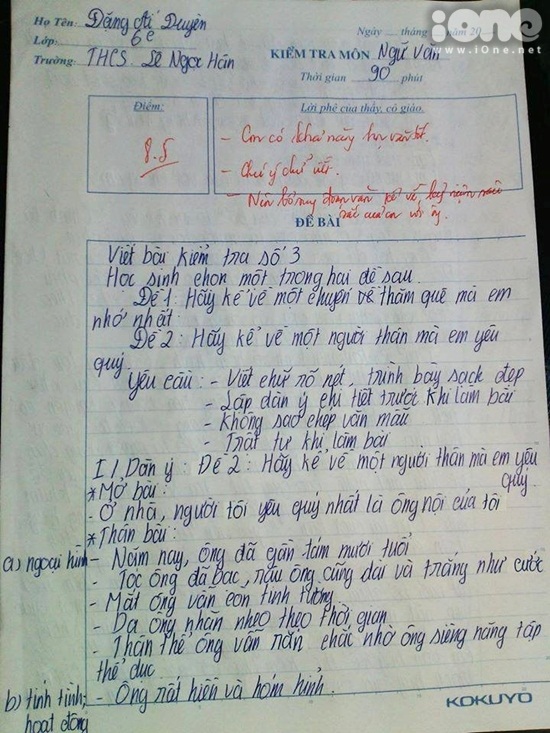 iOne
www.iOne.net
Họ Tên: Đặng Ái Duyên
Lớp: 6e
Trường: THCS Lê Ngọc Hân
Ngày tháng năm 20
KIỂM TRA MÔN Ngữ Văn
Thời gian 90 phút
Điểm:
8.5
Lời phê của thầy, cô giáo.
- Con có khả năng học văn tốt.
- Chú ý chữ viết.
- Nên bổ sung đoạn văn kể về
của con với ông.
ĐỀ BÀI
Viết bài kiểm tra số 3
Học sinh chọn một trong hai đề sau
Đề 1: Hãy kể về một chuyến về thăm quê mà em
nhớ nhất
Đề 2: Hãy kể về một người thân mà em yêu
quý.
Yêu cầu: - Viết chữ rõ nét, trình bày sạch đẹp
- Lập dàn ý chi tiết trước khi làm bài
- Không sao chép văn mẫu
- Trật tự khi làm bài
I/ Dàn ý: Đề 2: Hãy kể về một người thân mà em yêu
quý.
* Mở bài:
- Ở nhà, người tôi yêu quý nhất là ông nội của tôi
* Thân bài:
a) ngoại hình - Năm nay, ông đã gần tám mươi tuổi
- Tóc ông đã bạc, râu ông cũng dài và trắng như cước
- Mắt ông vẫn còn tinh tường
- Da ông nhăn nheo theo thời gian
- Thân thể ông vẫn rắn chắc nhờ ông siêng năng tập
thể dục
b) tính tình, - Ông rất hiền và hóm hỉnh.
hoạt động
KOKUYO